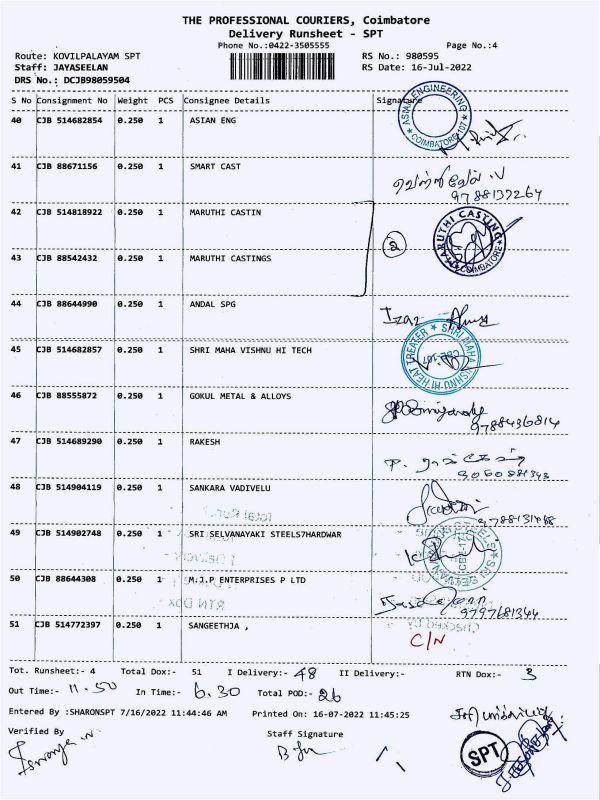 THE PROFESSIONAL COURIERS, Coimbatore
Delivery Runsheet - SPT
Phone No.:0422-3505555
Page No.:4
Route: KOVILPALAYAM SPT
RS No.: 980595
Staff: JAYASEELAN
RS Date: 16-Jul-2022
DRS No.: DCJB98059504
S No Consignment No Weight PCS Consignee Details Signature
40 CJB 514682854 0.250 1 ASIAN ENG
ASIAN ENGINEERING COIMBATORE-107
41 CJB 88671156 0.250 1 SMART CAST
வெற்றிவேல் .ப
9788137264
42 CJB 514818922 0.250 1 MARUTHI CASTIN
2
MARUTHI CASTING COIMBATORE
43 CJB 88542432 0.250 1 MARUTHI CASTINGS
44 CJB 88644990 0.250 1 ANDAL SPG
45 CJB 514682857 0.250 1 SHRI MAHA VISHNU HI TECH
SHRI MAHA VISHNU HI HEAT TREATER CBE-107
46 CJB 88555872 0.250 1 GOKUL METAL & ALLOYS
9788436814
47 CJB 514689290 0.250 1 RAKESH
48 CJB 514904119 0.250 1 SANKARA VADIVELU
49 CJB 514902748 0.250 1 SRI SELVANAYAKI STEELS7HARDWAR
50 CJB 88644308 0.250 1 M.J.P ENTERPRISES P LTD
9797681344
51 CJB 514772397 0.250 1 SANGEETHJA ,
C/N
Tot. Runsheet:- 4 Total Dox:- 51 I Delivery:- 48 II Delivery:- RTN Dox:- 3
Out Time:- 11.50 In Time:- 6.30 Total POD:- 26
Entered By :SHARONSPT 7/16/2022 11:44:46 AM Printed On: 16-07-2022 11:45:25
Verified By Staff Signature
SPT